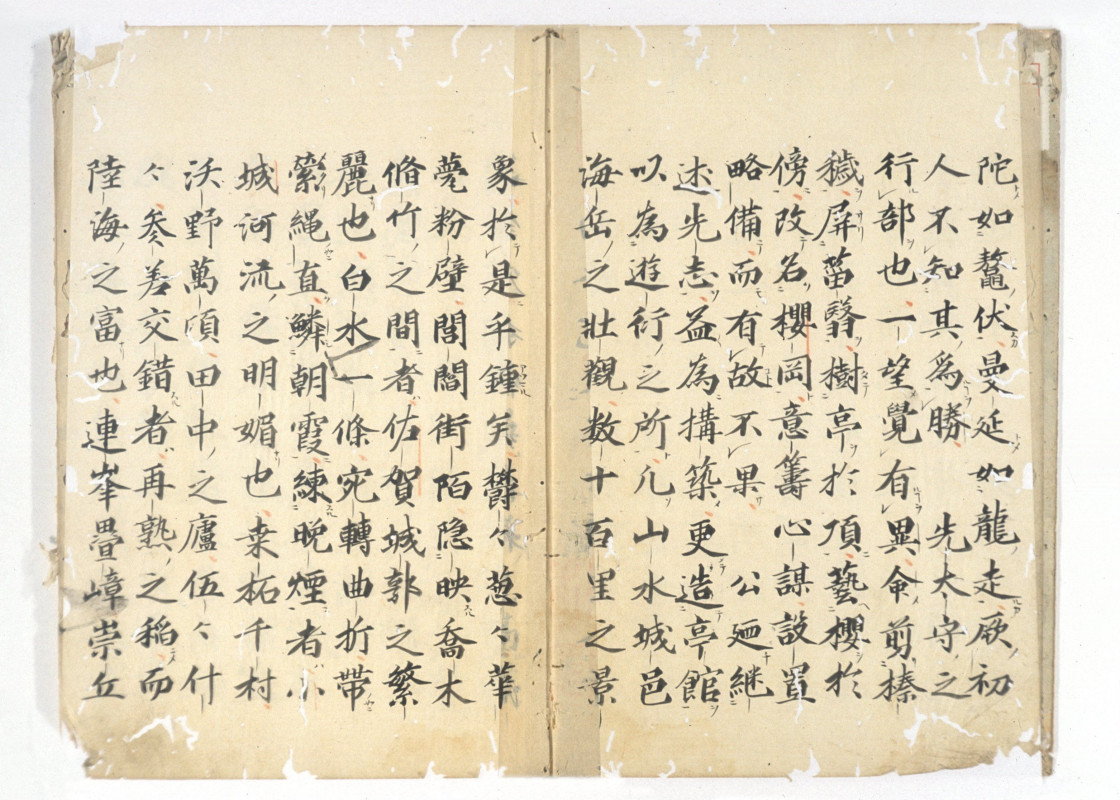 陀如鼇伏曼延如龍走厥初
人不知其為勝　先太守之
行部也一望覺有異命剪榛
穢屏菑翳樹亭於頂藝櫻於
傍改名櫻岡意籌心謀設置
略備而有故不果　公廼継
述先志益為搆築更造亭館
以為遊衍之所凡山水城邑
海岳之壮觀数十百里之景
象於是乎鍾矣欝々葱々華
甍粉壁閭閻街陌隠映喬木
脩竹之間者佐賀城郭之繁
麗也白水一條宛轉曲折帯
縈繩直鱗朝霞練晩煙者小
城河流之明媚也桒柘千村
沃野萬頃田中之廬伍々什
々参差交錯者再熟之稲而
陸海之富也連峯畳嶂崇丘